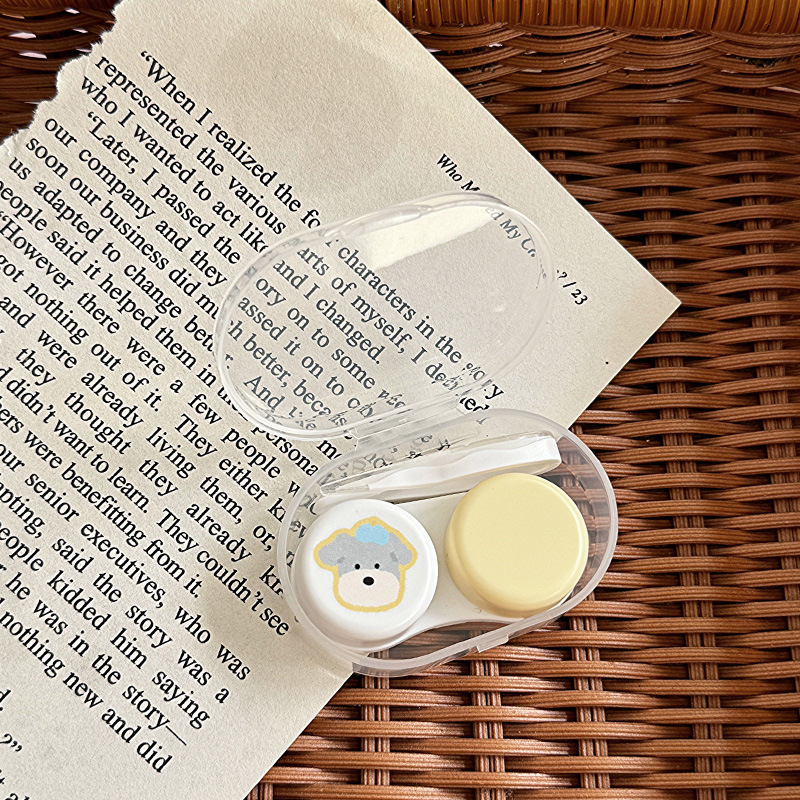 Who Moved My Cheese? / 23
“When I realized the four characters in the story
represented the various parts of myself, I decided
who I wanted to act like and I changed.
“Later, I passed the story on to some
our company and they passed it on to
soon our business did much better, because
us adapted to change better. And like
people said it helped them in their personal
“However there were a few people who
got nothing out of it. They either knew
and were already living them, or,
they thought they already
didn’t want to learn. They couldn’t see
were benefitting from it.
our senior executives, who was
said the story was a
people kidded him saying
he was in the story—
nothing new and did